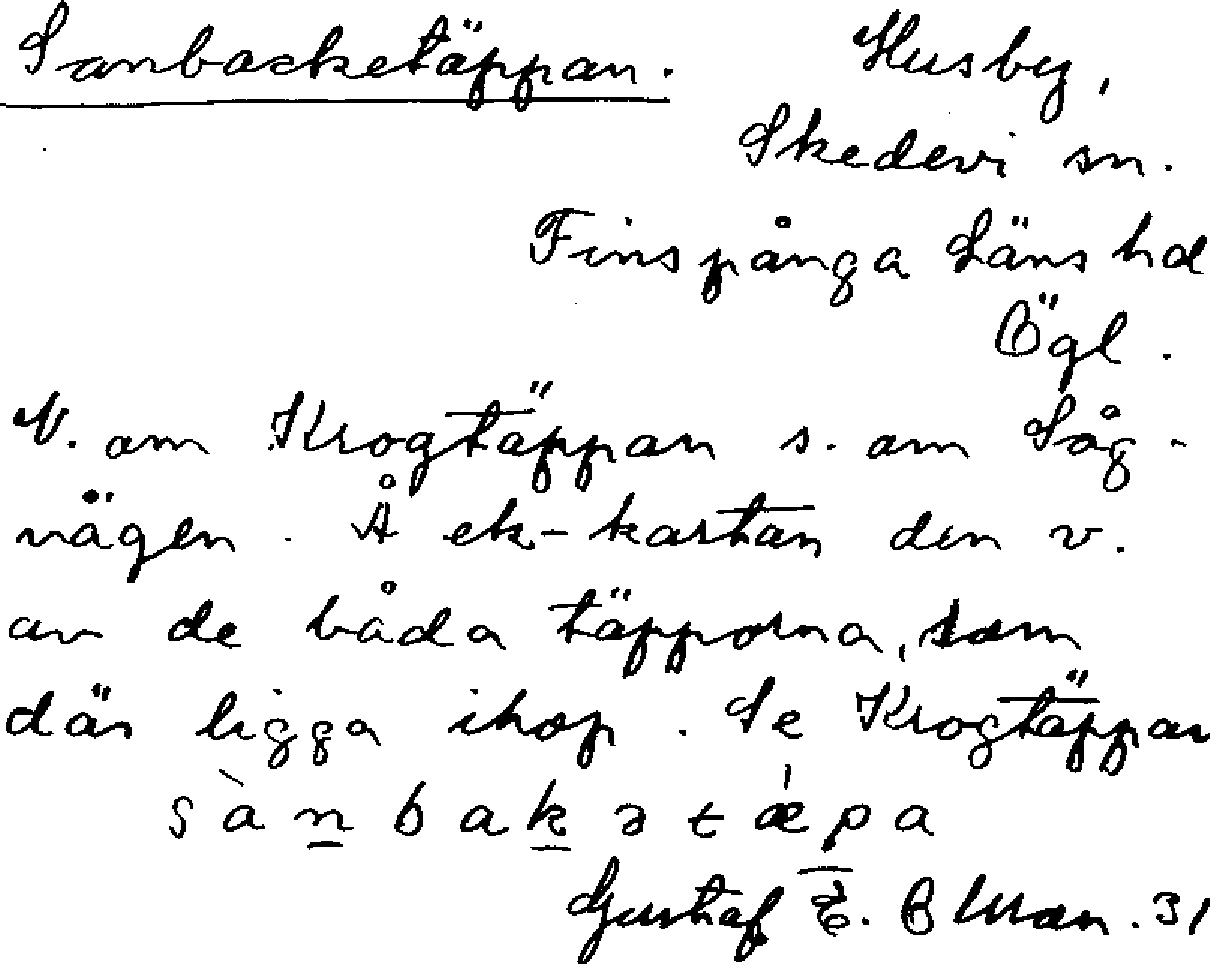 Sanbacketäppan. Husby,
Skedevi sn.
Finspånga Läns hd
Ögl.
N. om Krogtäppan s. om Såg-
vägen. Å ek-kartan den v.
av de båda täpporna, som
där ligga ihop. Se Krogtäppan
sànbakətǽpa
Gustaf E. 31